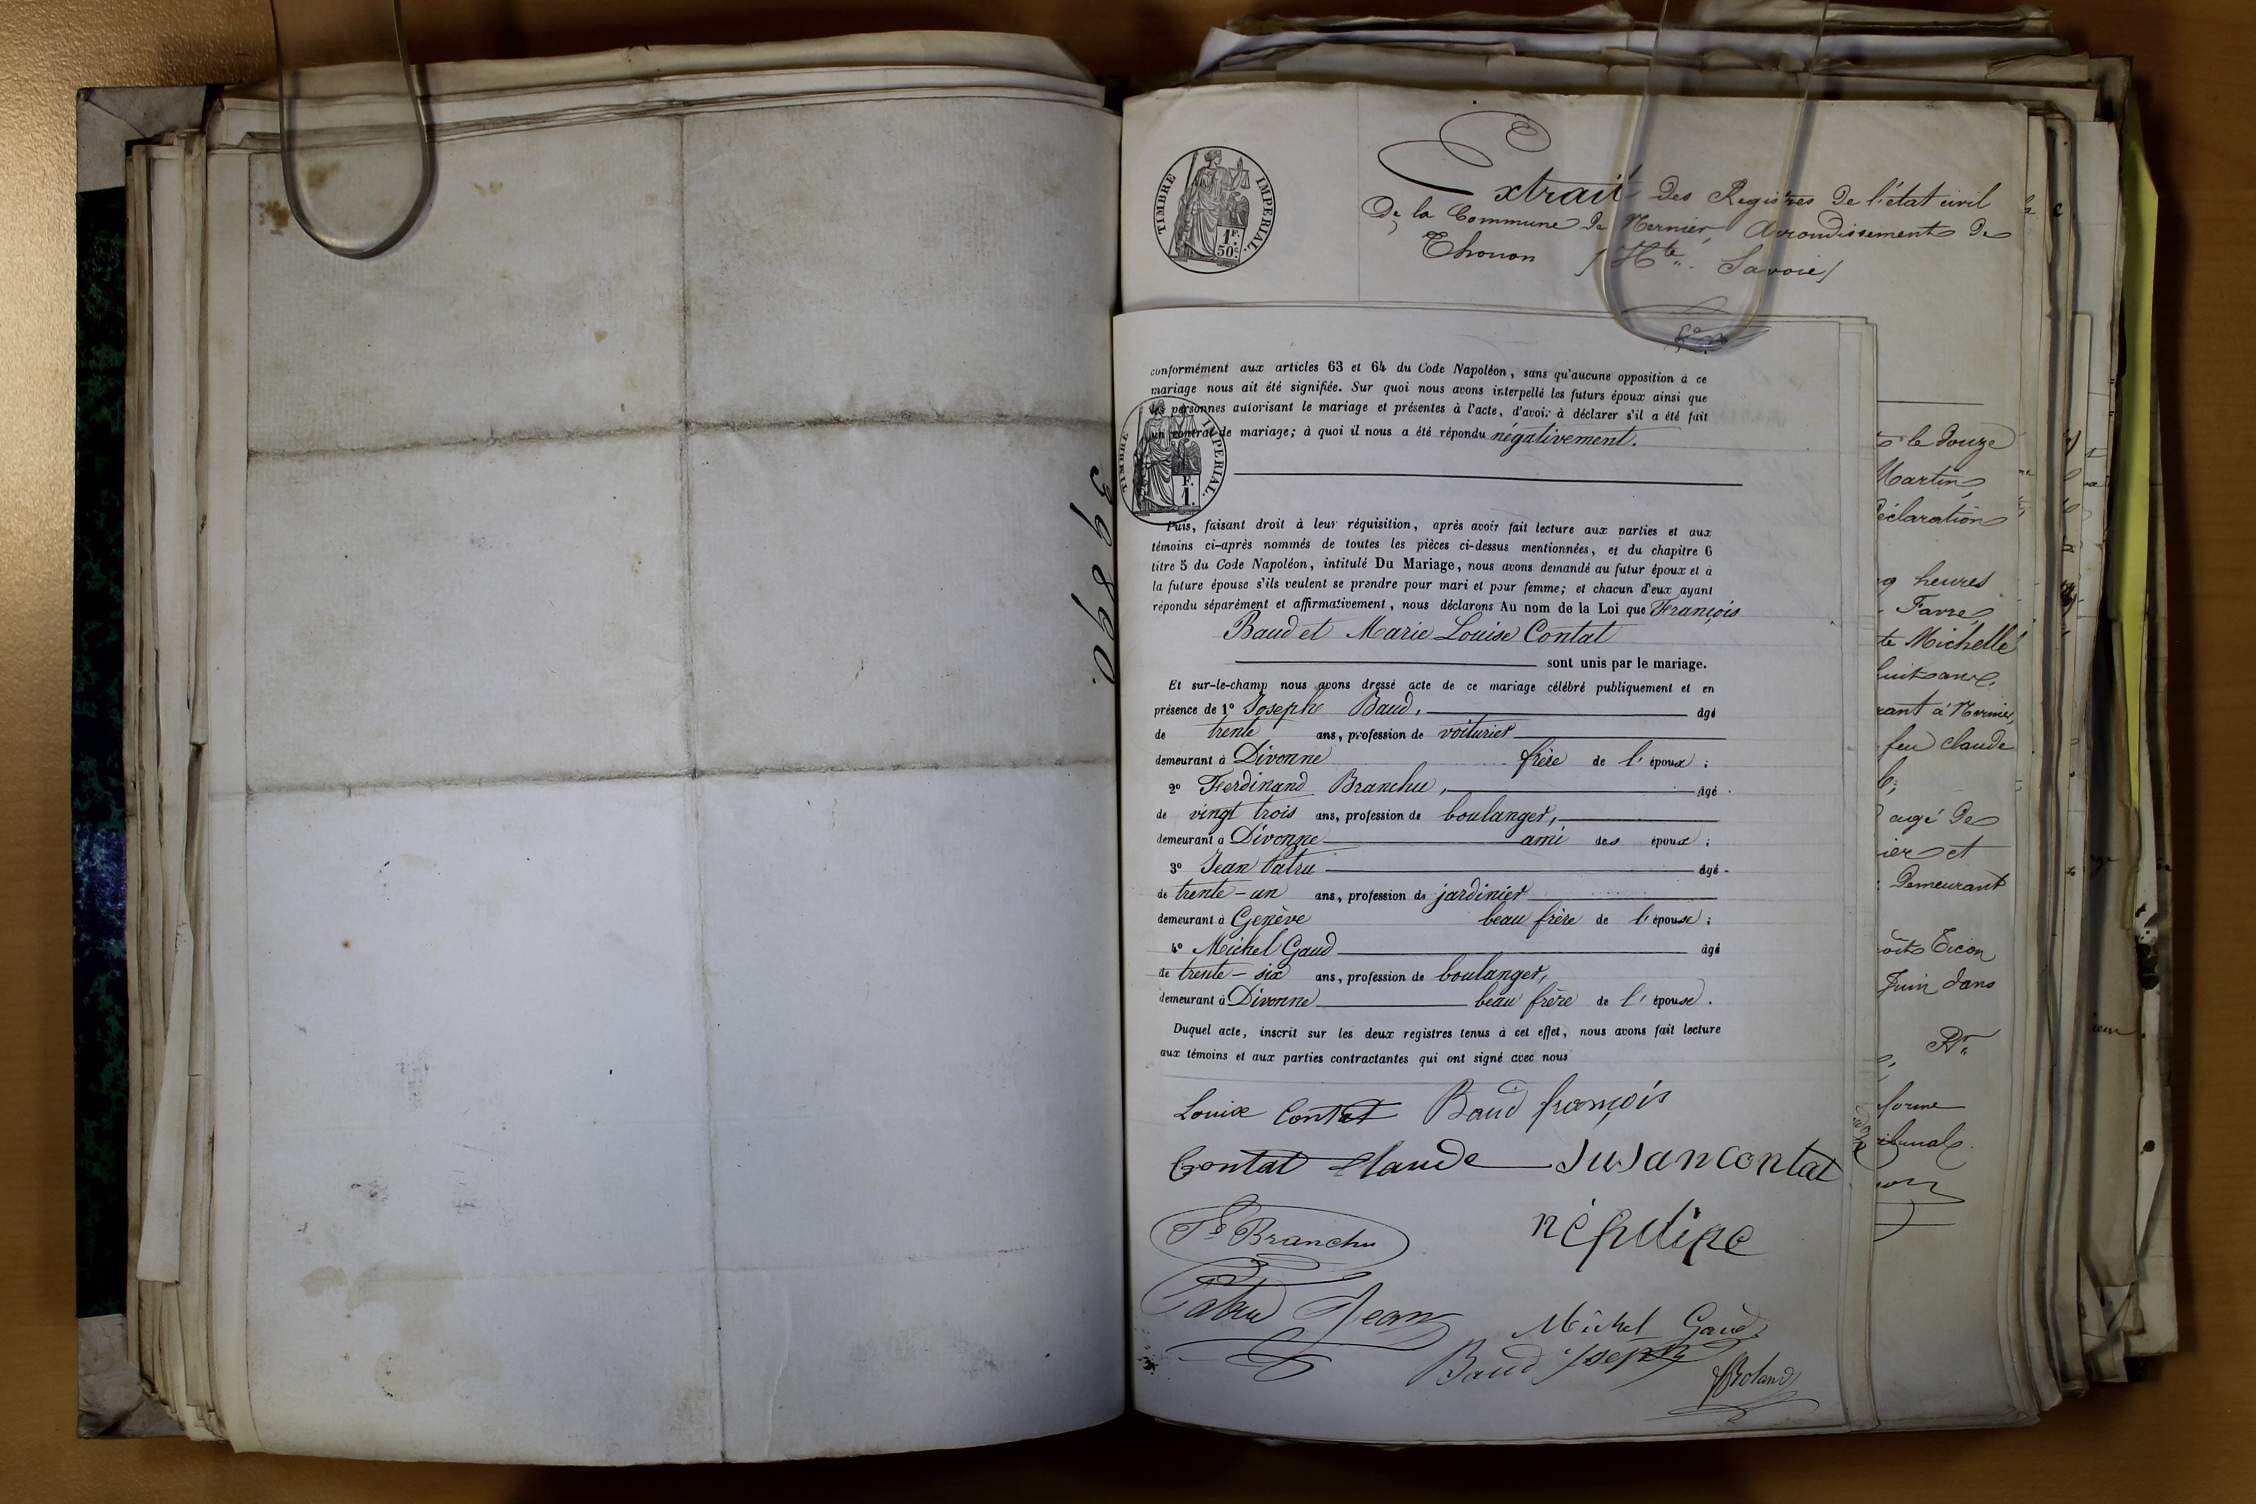 39890.
TIMBRE IMPERIAL.
1F. 50c.
Extrait des Registres de l'état civil
De la Commune de Nernier, Arrondissement de
Thonon / Hte. Savoie /
conformément aux articles 63 et 64 du Code Napoléon, sans qu'aucune opposition à ce
mariage nous ait été signifiée. Sur quoi nous avons interpellé les futurs époux ainsi que
les personnes autorisant le mariage et présentes à l'acte, d'avoir à déclarer s'il a été fait
un contrat de mariage; à quoi il nous a été répondu négativement.
TIMBRE IMPERIAL.
1 F.
Puis, faisant droit à leur réquisition, après avoir fait lecture aux parties et aux
témoins ci-après nommés de toutes les pièces ci-dessus mentionnées, et du chapitre 6
titre 5 du Code Napoléon, intitulé Du Mariage, nous avons demandé au futur époux et à
la future épouse s'ils veulent se prendre pour mari et pour femme; et chacun d'eux ayant
répondu séparément et affirmativement, nous déclarons Au nom de la Loi que François
Baud et Marie Louise Contat
sont unis par le mariage.
Et sur-le-champ nous avons dressé acte de ce mariage célébré publiquement et en
présence de 1º Joseph Baud, âgé
de trente ans, profession de voiturier
demeurant à Divonne frère de l'époux;
2º Ferdinand Branchu, âgé
de vingt trois ans, profession de boulanger,
demeurant à Divonne ami des époux;
3º Jean Patru âgé
de trente-un ans, profession de jardinier
demeurant à Genève beau frère de l'épouse;
4º Michel Gaud âgé
de trente-six ans, profession de boulanger,
demeurant à Divonne beau frère de l'épouse.
Duquel acte, inscrit sur les deux registres tenus à cet effet, nous avons fait lecture
aux témoins et aux parties contractantes qui ont signé avec nous
Louise Contat Baud françois
Contat Claude Susan contat
Branchu
Patru Jean
Michel Gaud
Baud Joseph
Roland
le douze
Martin
Déclaration
heures
Favre
Michelle
huit ans,
à Nernier,
feu claude
agé de
et
Demeurant
Juin dans